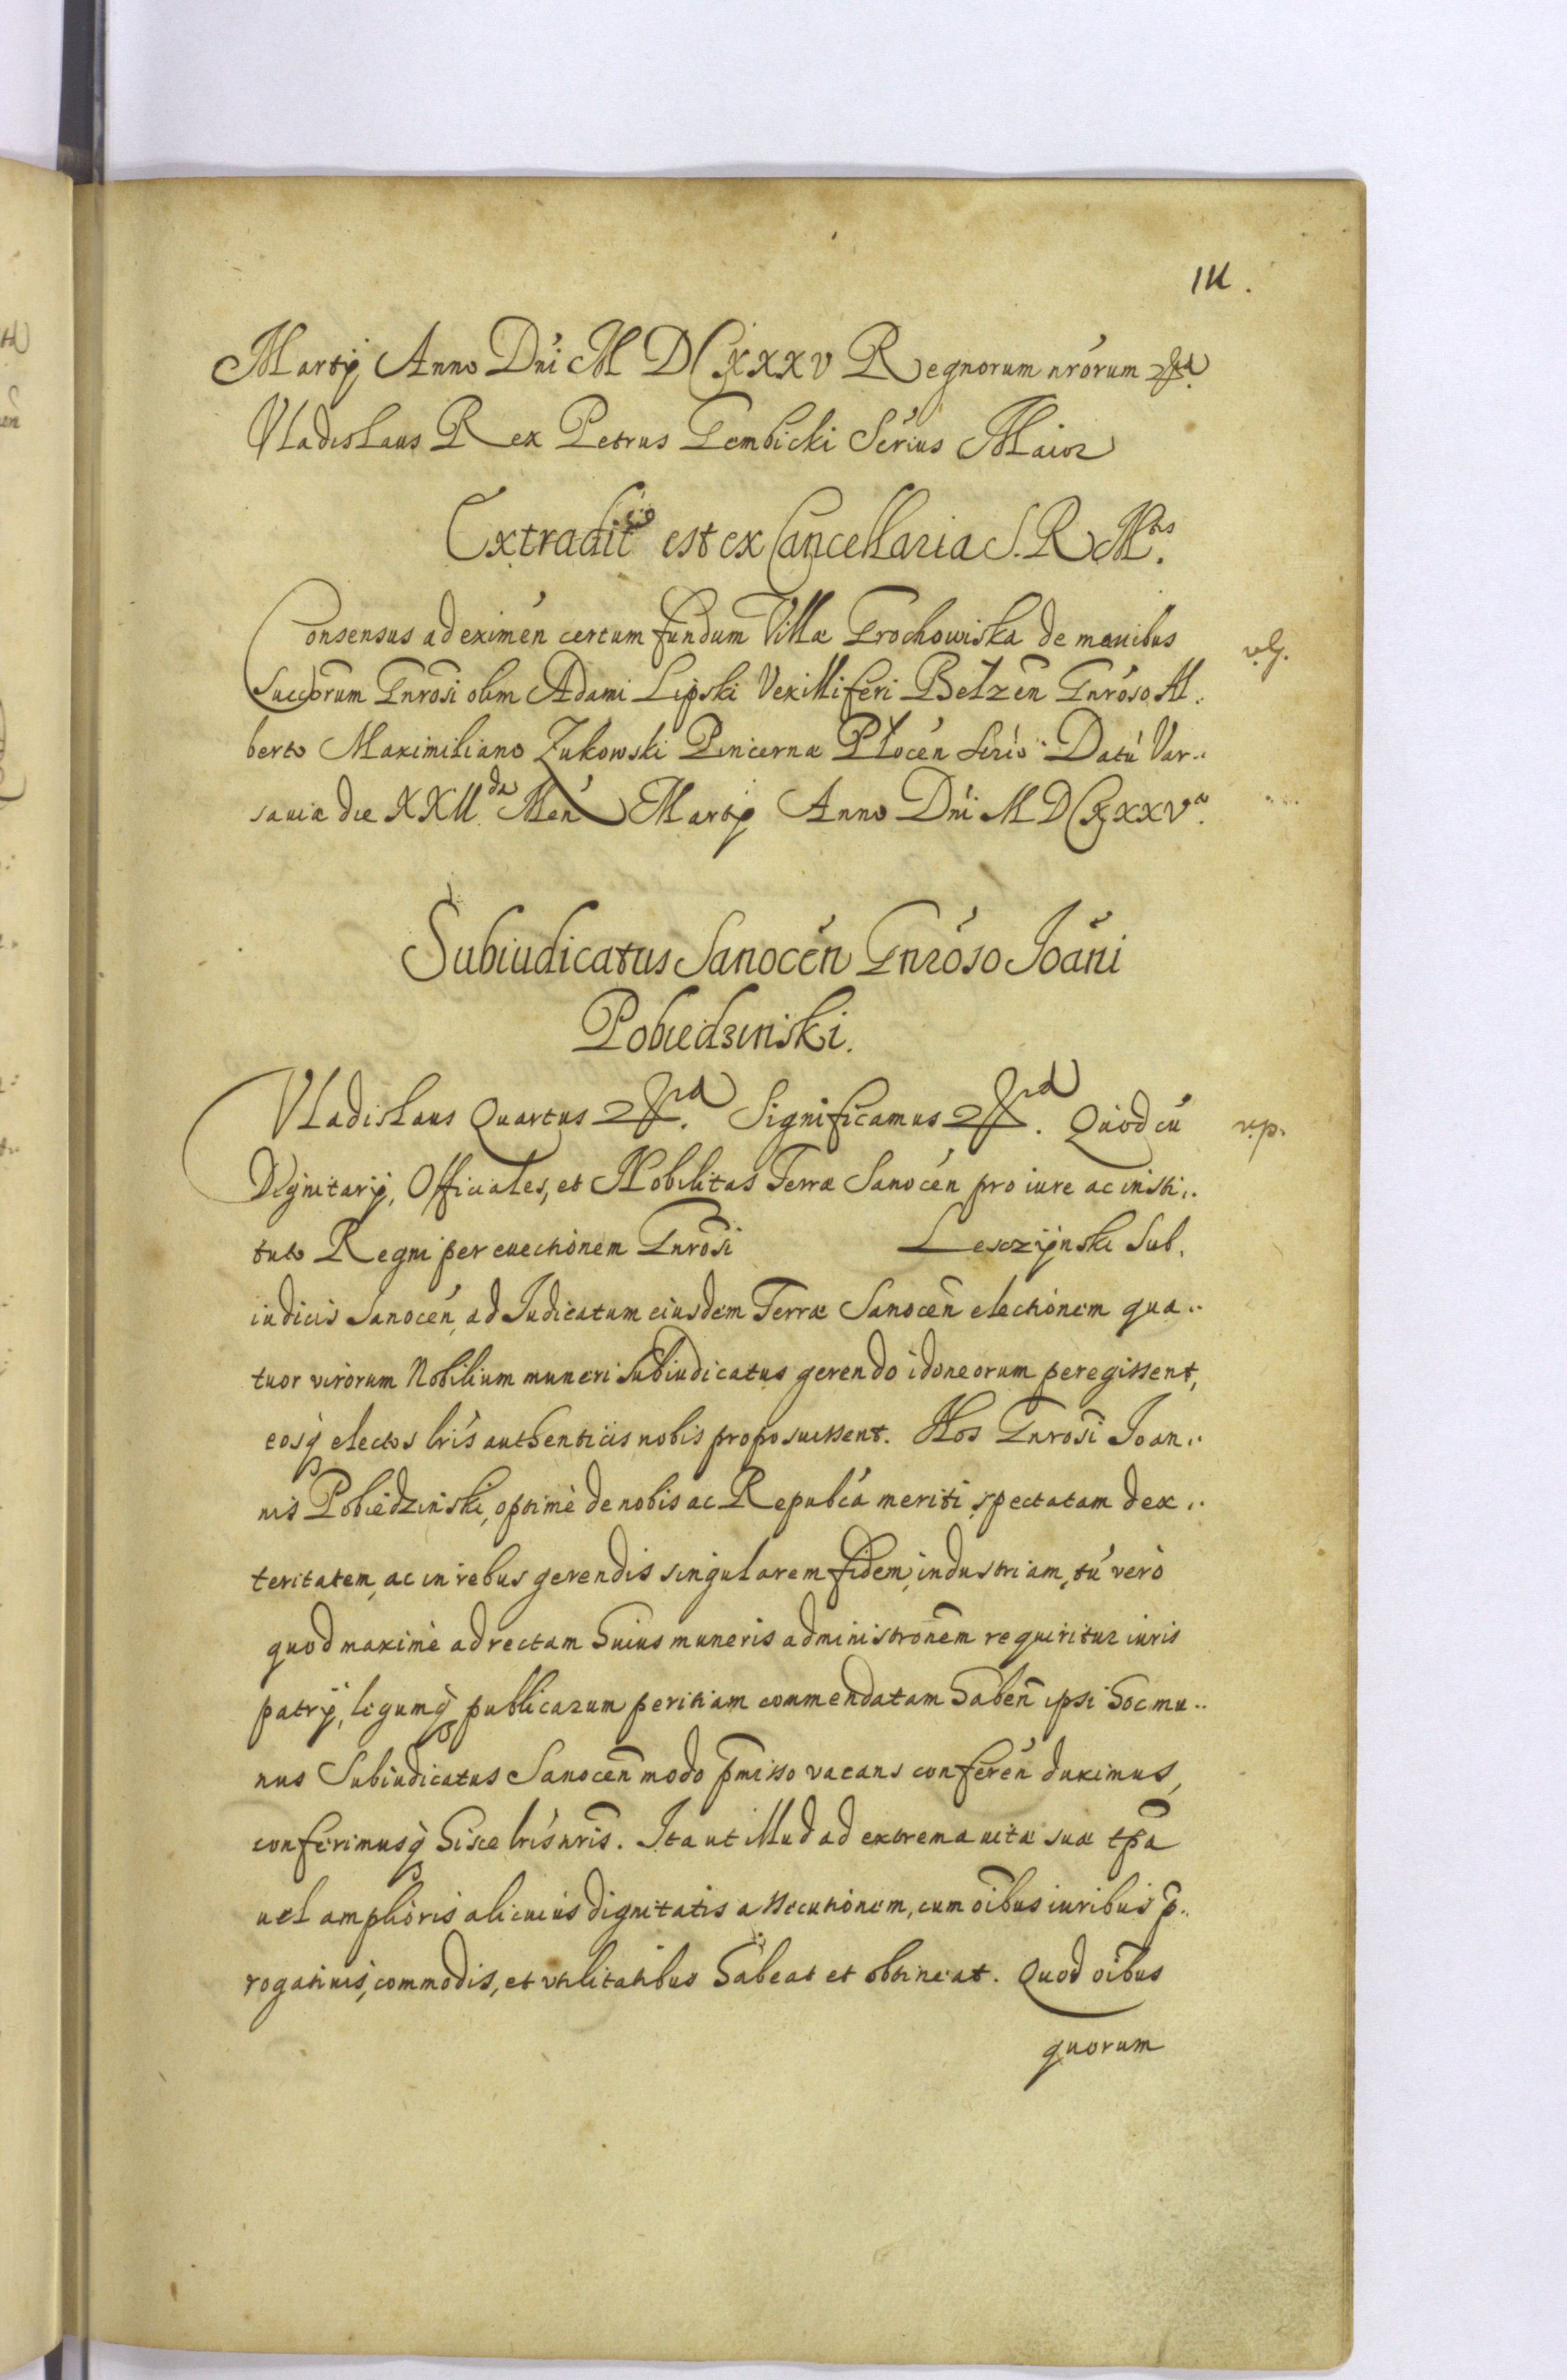 111.
Martij Anno Dni M D C XXX V Regnorum nrorum etc
Vladislaus Rex Petrus Gembicki Serius Maior
Extraditio est ex Cancellaria S. R. Mtis.
Consensus ad eximen certum fundum Villæ Grochowiska de manibus
Succorum Gnrosi olim Adami Lipski Vexilliferi Belzen Gnroso Al..
berto Maximiliano Zukowski Pincernæ Plocen Serio. Datu Var..
sauiæ die XXII da Men Martij Anno Dni M D C XXX V o.
Subiudicatus Sanocen Gnroso Joani
Pobiedzinski.
Vladislaus Quartus etc. Significamus etc. Quod cu
v.p.
Dignitarij, Officiales, et Nobilitas Terræ Sanocen pro iure ac insti..
tuto Regni per euectionem Gnrosi Lesczijnski Sub.
iudicis Sanocen, ad Judicatum eiusdem Terræ Sanocen electionem qua..
tuor virorum Nobilium muneri Subiudicatus gerendo idoneorum peregissent,
eosq electos lris authenticis nobis proposuissent. Nos Gnrosi Joan..
nis Pobiedzinski, optimè de nobis ac Republca meriti, spectatam dex..
teritatem, ac in rebus gerendis singularem fidem, industriam, tu verò
quod maximè ad rectam huius muneris administronem requiritur iuris
patrij, legumq publicarum peritiam commendatam haben ipsi hoc mu..
nus Subiudicatus Sanocen modo pmisso vacans conferen duximus,
conferimusq hisce lris nris. Ita ut illud ad extrema uitæ suæ tpa
uel amplioris alicuius dignitatis assecutionem, cum oibus iuribus p..
rogatiuis, commodis, et vtilitatibus habeat et obtineat. Quod oibus
quorum